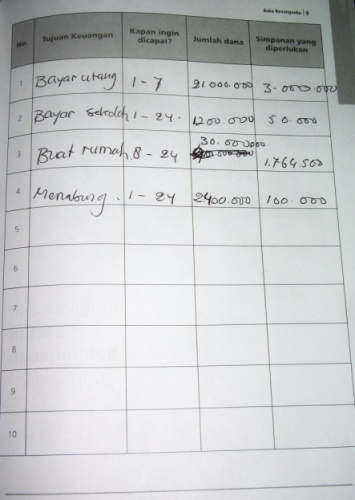 Buku Keuanganku | 9
No. Tujuan Keuangan Kapan ingin dicapai? Jumlah dana Simpanan yang diperlukan
1 Bayar utang 1-7 21000.000 3.000.000
2 Bayar sekolah 1-24. 1200.000 50.000
3 Buat rumah 8-24 30.000000 1.764.500
4 Menabung. 1-24 2400.000 100.000
5
6
7
8
9
10